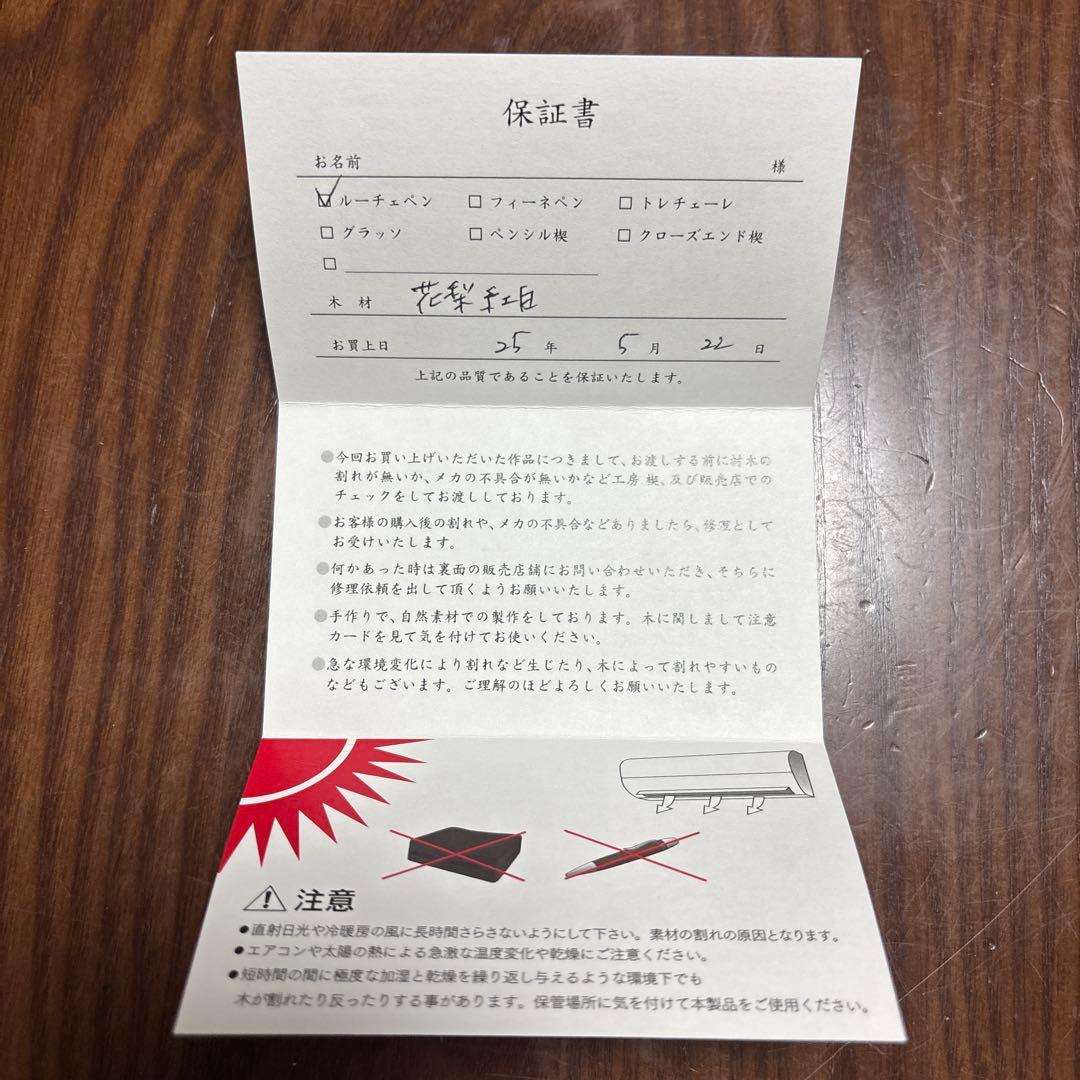 保証書
お名前 様
☑ルーチェペン □フィーネペン □トレチェーレ
□グラッソ □ペンシル楔 □クローズエンド楔
□
木材 花梨 紅白
お買上日 25年 5月 22日
上記の品質であることを保証いたします。
●今回お買い上げいただいた作品につきまして、お渡しする前に材木の
割れが無いか、メカの不具合が無いかなど工房 楔、及び販売店での
チェックをしてお渡ししております。
●お客様の購入後の割れや、メカの不具合などありましたら、修理として
お受けいたします。
●何かあった時は裏面の販売店舗にお問い合わせいただき、そちらに
修理依頼を出して頂くようお願いいたします。
●手作りで、自然素材での製作をしております。木に関しまして注意
カードを見て気を付けてお使いください。
●急な環境変化により割れなど生じたり、木によって割れやすいもの
などもございます。ご理解のほどよろしくお願いいたします。
注意
●直射日光や冷暖房の風に長時間さらさないようにして下さい。素材の割れの原因となります。
●エアコンや太陽の熱による急激な温度変化や乾燥にご注意ください。
●短時間の間に極度な加湿と乾燥を繰り返し与えるような環境下でも
木が割れたり反ったりする事があります。保管場所に気を付けて本製品をご使用ください。